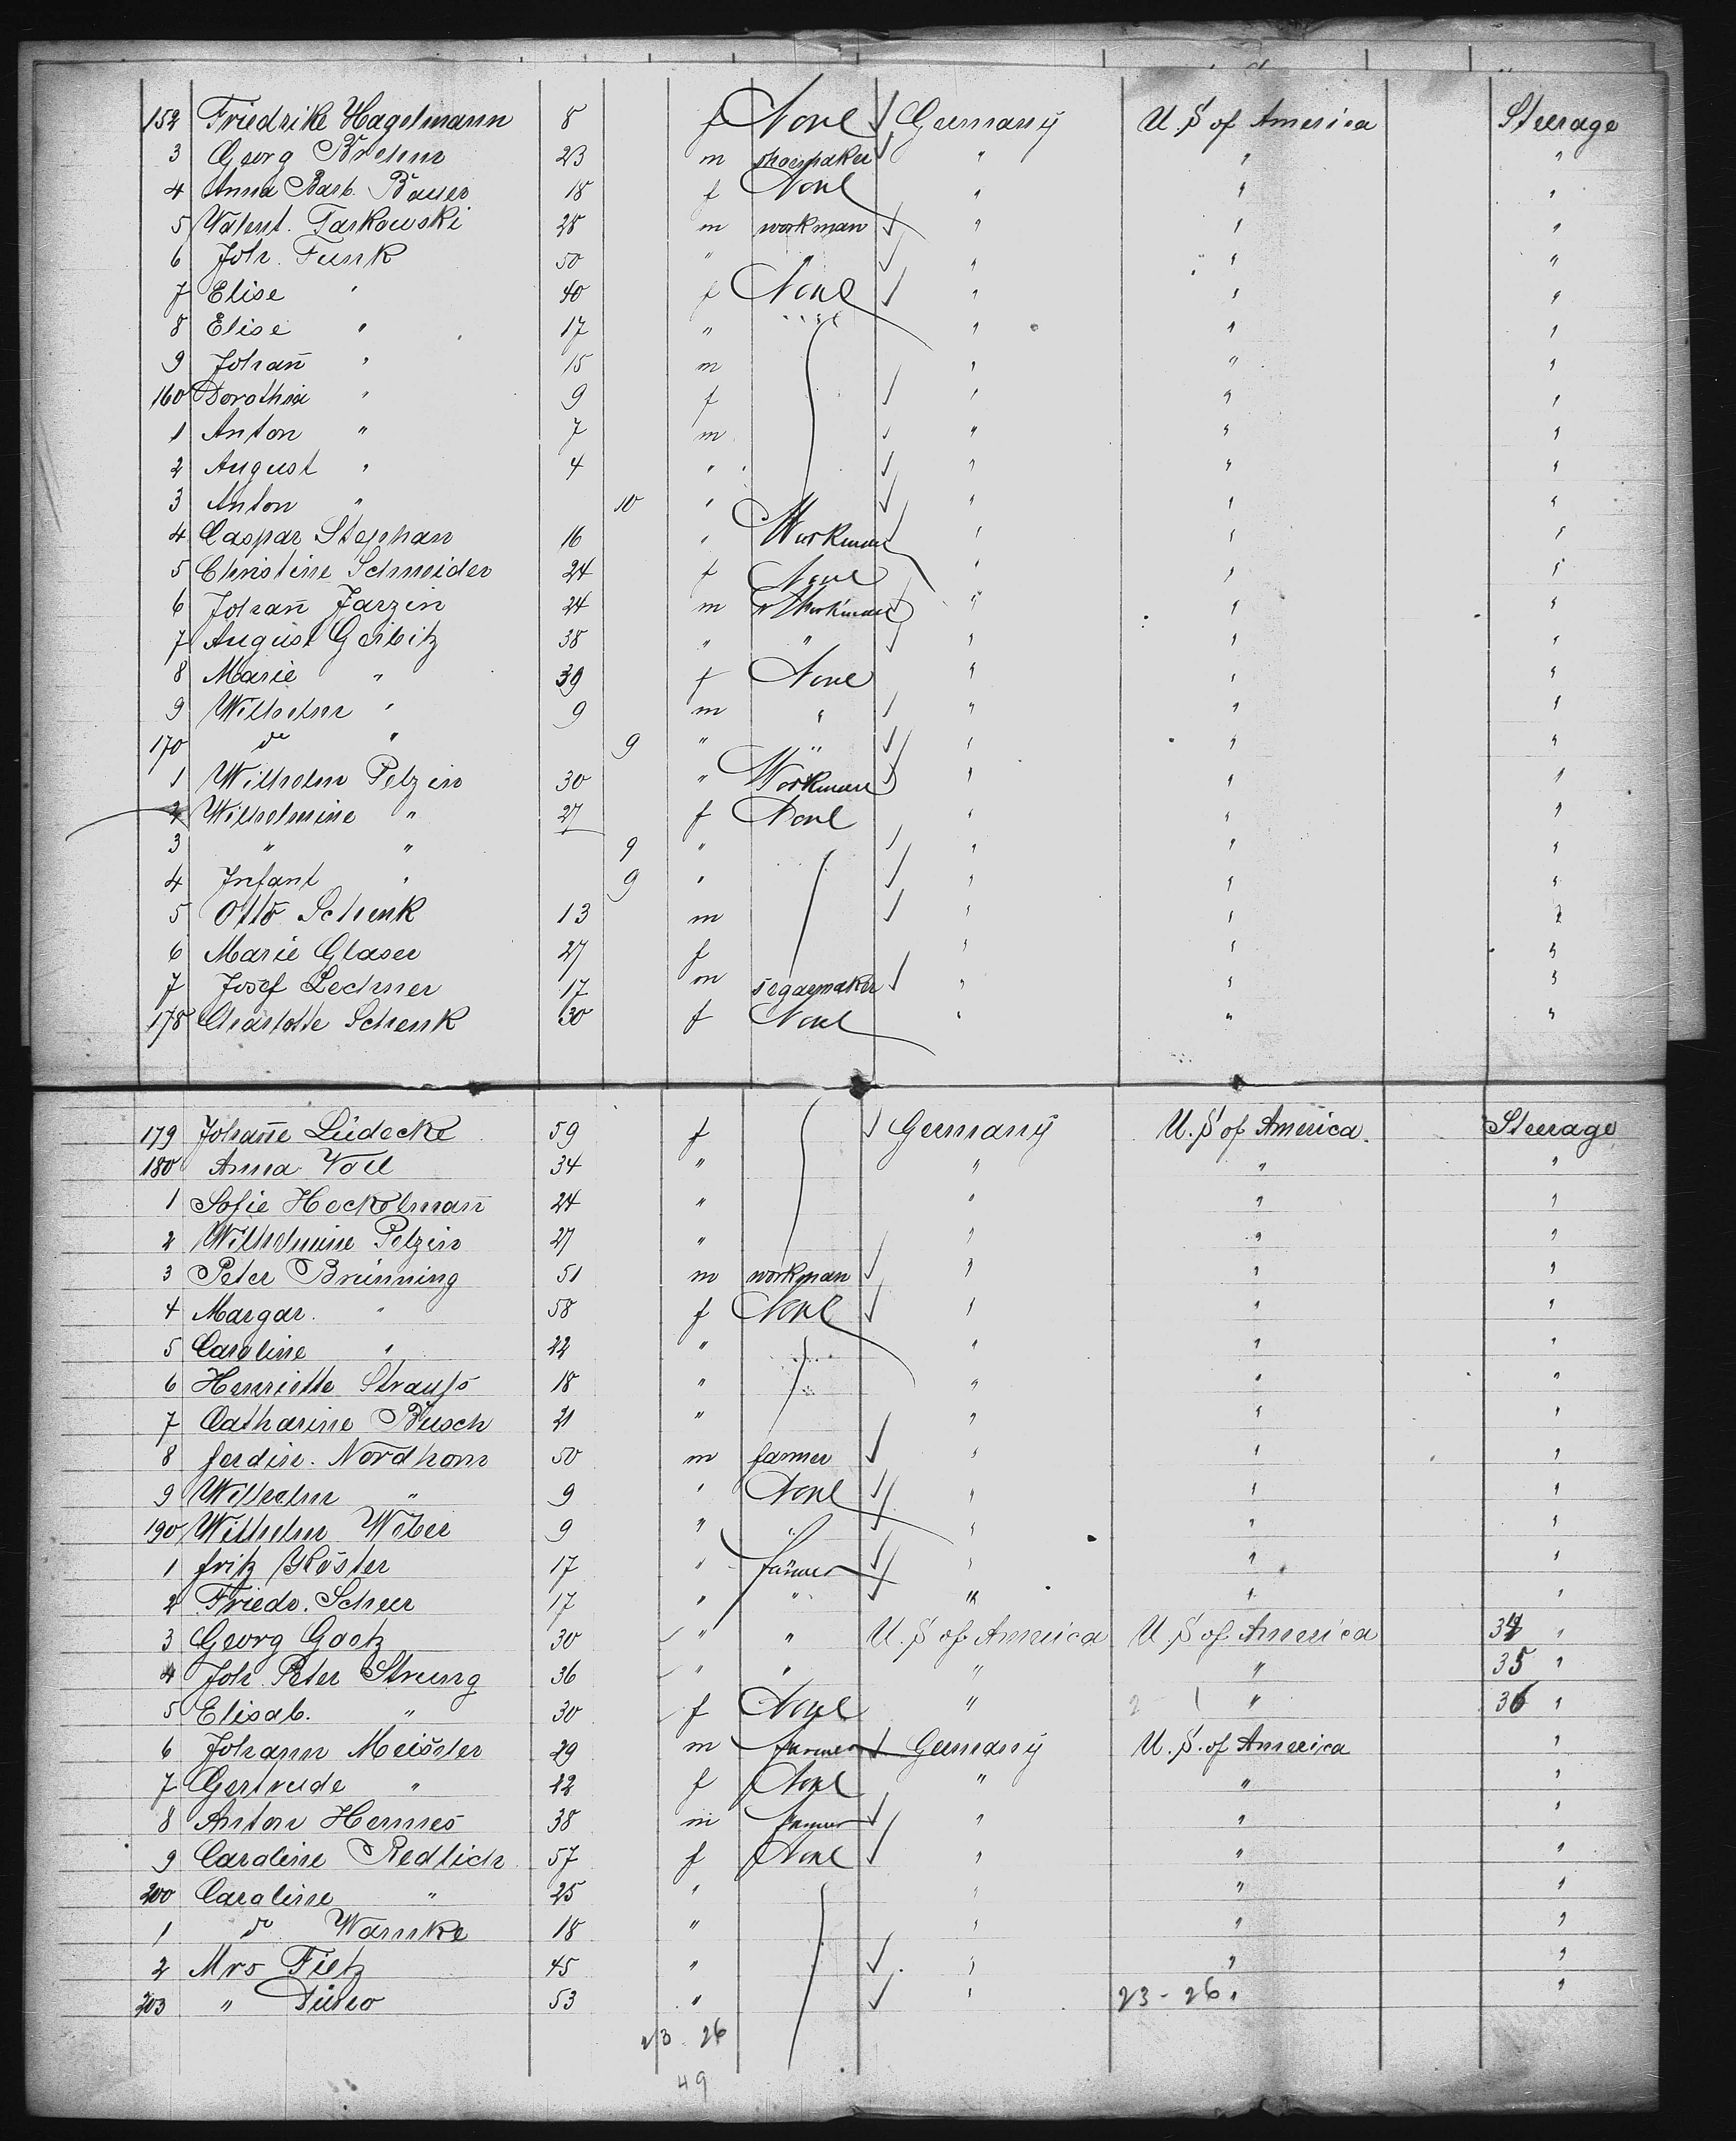 152 Friedrike Hagelmann 8 f None Germany U.S of America Steerage
3 Georg Brehm 23 m shoemaker " " "
4 Anna Barb. Bauer 18 f None " " "
5 Valent. Taskowski 28 m workman " " "
6 Joh. Funk 50 " " " " "
7 Elise " 40 f None " " "
8 Elise " 17 " " " "
9 Johañ " 15 m " " "
160 Dorothea " 9 f " " "
1 Anton " 7 m " " "
2 August " 4 " " " "
3 Anton " 10 " " " "
4 Caspar Stephan 16 " Workman " " "
5 Christine Schneider 24 f None " " "
6 Johañ Jarzin 24 m Workman " " "
7 August Geibitz 38 " " " " "
8 Marie " 39 f None " " "
9 Wilhelm " 9 m " " " "
170 do " 9 " " " " "
1 Wilhelm Pelzin 30 " Workman " " "
2 Wilhelmine " 27 f None " " "
3 " " 9 " " " "
4 Infant " 9 " " " "
5 Otto Schenk 13 m " " "
6 Marie Glaser 27 f " " "
7 Josef Lechner 17 m segarmaker " " "
178 Charlotte Schenk 30 f None " " "
179 Johañe Lüdecke 59 f Germany U.S of America. Steerage
180 Anna Voll 34 " " " "
1 Sofie Heckelmañ 24 " " " "
2 Wilhelmine Pelzin 27 " " " "
3 Peter Brünning 51 m workman " " "
4 Margar. " 58 f None " " "
5 Caroline " 22 " " " "
6 Henriette Strauss 18 " " " "
7 Catharine Busch 21 " " " "
8 ferdin. Nordhorn 50 m farmer " " "
9 Wilhelm " 9 " None " " "
190 Wilhelm Weber 9 " " " " "
1 fritz Köster 17 " farmer " " "
2 Friedr. Scheer 17 " " " " "
3 Georg Goetz 30 " " U.S of America U.S of America 34 "
4 Joh. Peter Strung 36 " " " " 35 "
5 Elisab. " 30 f None " " 36 "
6 Johann Meister 29 m farmer Germany U.S. of America "
7 Gertrude " 22 f None " " "
8 Anton Hermes 38 m farmer " " "
9 Caroline Redlich 57 f None " " "
200 Caroline " 25 " " " "
1 do Warnke 18 " " " "
2 Mrs Fietz 45 " " " "
203 " 53 " " 23-26 " "
23 26
49